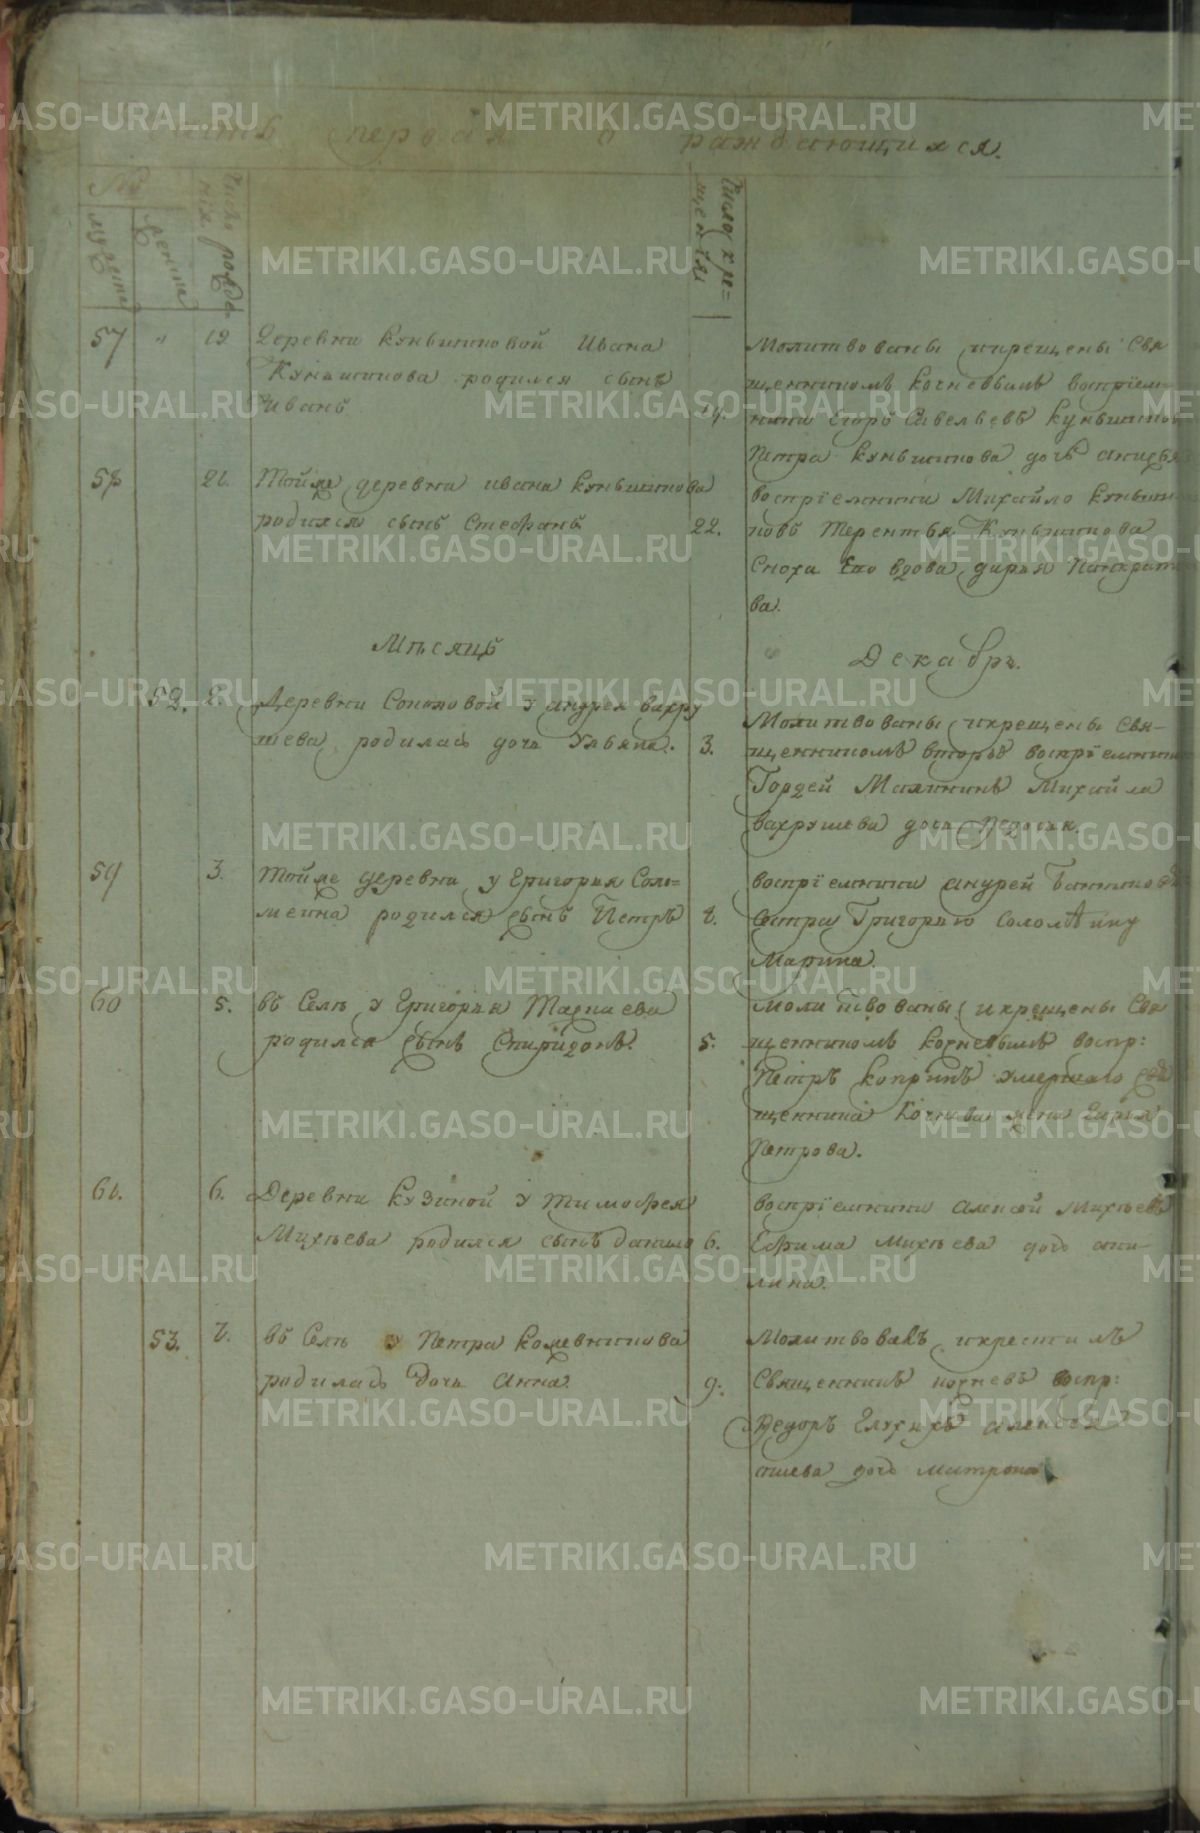 Часть первая о раждающихся.
№
Число рожде-
нія
Число кре=
щенія
мужеска
женска
57 " 19 Деревни Куньшиновой Ивана
Куньшинова родился сынъ
Иванъ
Молитвованы и крещены Свя
щенникомъ Кочневымъ воспріем-
ники Егоръ Савельевъ
Петра Куньшинова дочь
58 21. Тойже деревни Ивана Куньшинова
родился сынъ Стефанъ
22.
воспріемники Михайло Куньши
новъ Терентья Куньшинова
Сноха Его вдова Дарья Панкрат
ва.
Мѣсяцъ
Декабрь.
52. 2. Деревни Соколовой у Андрея Вахру
шева родилась дочь Ульяна. 3.
Молитвованы и крещены Свя-
щенникомъ воспріемники
Гордей Малининъ Михайла
Вахрушева дочь Федосья.
59 3. Тойже деревни у Григорья Соло=
меина родился сынъ Петръ
воспріемники Андрей
Сестра Григорью Соломѣину
Марина
60 5. въ Селѣ у Григорья
родился сынъ Спиридонъ. 5.
Молитвованы и крещены Свя
щенникомъ Кочневымъ воспр:
Петръ умершаго Свя
щенника Кочнева жена Дарья
Петрова.
61. 6. Деревни Кузиной у Тимофея
Михѣева родился сынъ Данило 6.
воспріемники Алексѣй Михѣевъ
Ефима Михѣева дочь Аки-
лина.
53. 7. въ Селѣ у Петра Кожевникова
родилась дочь Анна. 9.
Молитвовалъ и крестилъ
Священникъ Кочневъ воспр:
Федоръ Глухихъ
дочь Матрона
METRIKI.GASO-URAL.RU